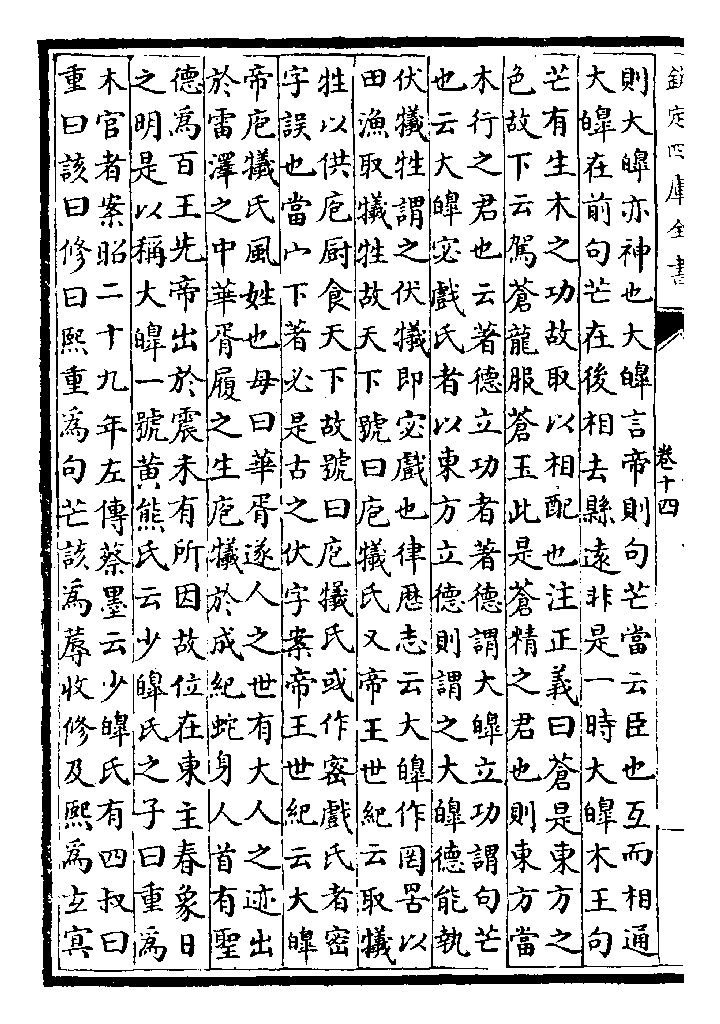 欽定四庫全書
卷十四
則大皥亦神也大皥言帝則句芒當云臣也互而相通
大皥在前句芒在後相去縣遠非是一時大皥木王句
芒有生木之功故取以相配也注正義曰蒼是東方之
色故下云駕蒼龍服蒼玉此是蒼精之君也則東方當
木行之君也云著德立功者著德謂大皥立功謂句芒
也云大皥宓戲氏者以東方立德則謂之大皥德能執
伏犧牲謂之伏犧即宓戲也律厯志云大皥作罔罟以
田漁取犧牲故天下號曰庖犧氏又帝王世紀云取犧
牲以供庖厨食天下故號曰庖犧氏或作密戲氏者密
字誤也當宀下著必是古之伏字案帝王世紀云大皥
帝庖犧氏風姓也母曰華胥遂人之世有大人之迹出
於雷澤之中華胥履之生庖犧於成紀蛇身人首有聖
德為百王先帝出於震未有所因故位在東主春象日
之明是以稱大皥一號黄熊氏云少皥氏之子曰重為
木官者案昭二十九年左傳蔡墨云少皥氏有四叔曰
重曰該曰修曰熙重為句芒該為蓐收修及熙為玄冥